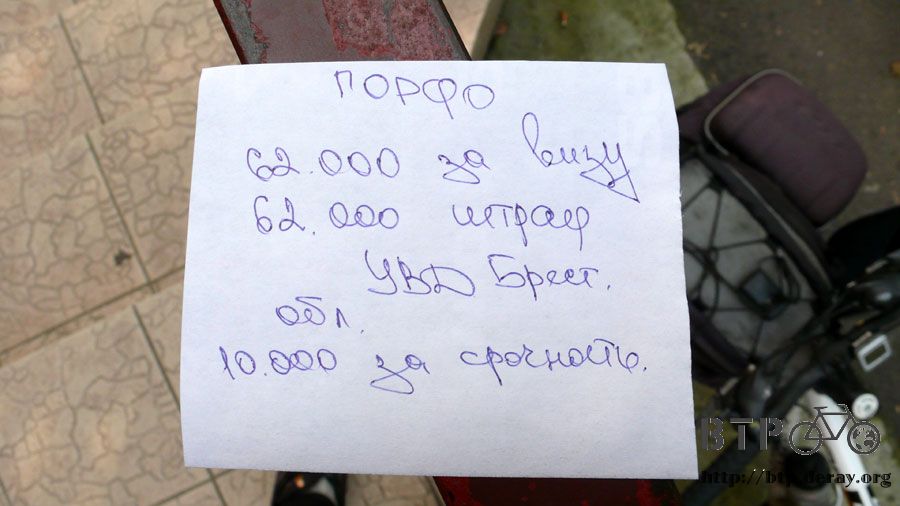 ПОРФО
62.000 за визу
62.000 штраф
УВД Брест.
обл.
10.000 за срочность.
BTP
http://btp.deray.org